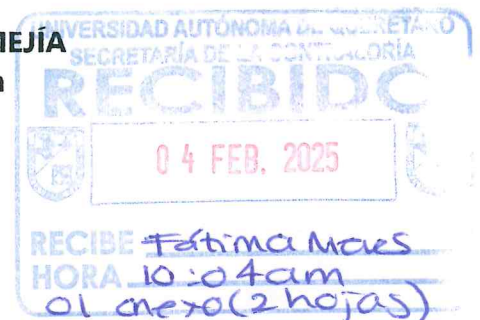 MEJÍA
UNIVERSIDAD AUTÓNOMA DE QUERÉTARO
SECRETARÍA DE LA CONTRALORÍA
RECIBIDO
04 FEB. 2025
RECIBE Fátima
HORA 10:04am
01 anexo (2 hojas)